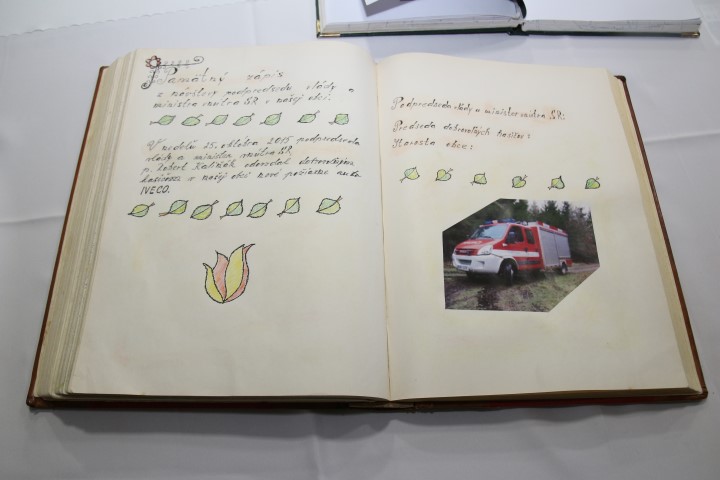 Pamätný zápis
z návštevy podpredsedu vlády a
ministra vnútra SR v našej obci.
V nedeľu 25. októbra 2015 podpredseda
vlády a minister vnútra SR
p. Robert Kaliňák odovzdal dobrovoľným
hasičom v našej obci nové požiarne auto
IVECO.
Podpredseda vlády a minister vnútra SR:
Predseda dobrovoľných hasičov:
Starosta obce: